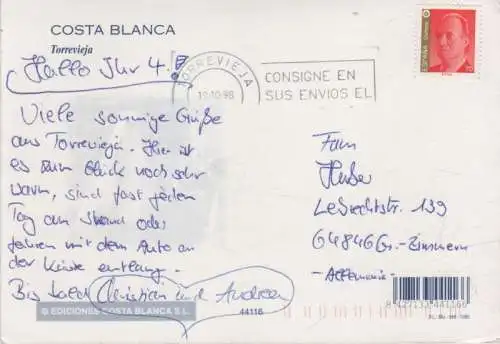 COSTA BLANCA
Torrevieja
Hallo Ihr 4!
Viele sonnige Grüße
aus Torrevieja. Hier ist
es zum Glück noch sehr
warm, sind fast jeden
Tag am Strand oder
fahren mit dem Auto an
der Küste entlang.
Bis bald Christian und Andrea
© EDICIONES COSTA BLANCA S.L.
44116
TORREVIEJA
19-10-98
CONSIGNE EN
SUS ENVIOS EL
ESPAÑA
Fam
Huber
Lebrechtstr. 139
64846 Gr.-Zimmern
-Allemania-